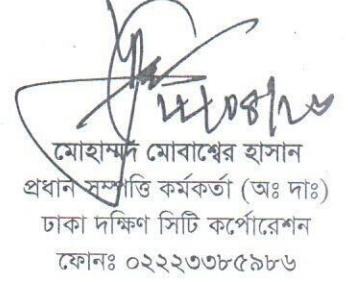 মোহাম্মদ মোবাশ্বের হাসান
প্রধান সম্পত্তি কর্মকর্তা (অঃ দাঃ)
ঢাকা দক্ষিণ সিটি কর্পোরেশন
ফোনঃ ০২২২৩৩৮৫৯৮৬